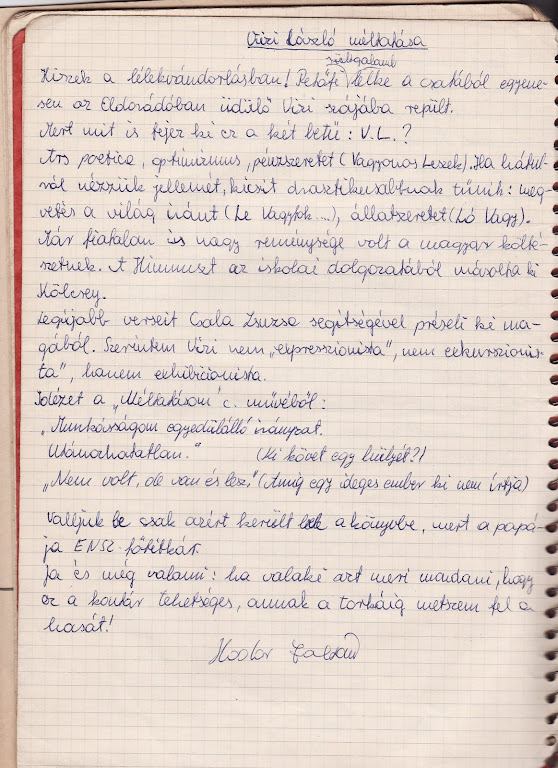 Vizi László méltatása
Hiszek a lélekvándorlásban! Petőfi (szívgalamb) lelke a csatából egyene-
sen az Eldorádóban üdülő Vizi szájába repült.
Mert mit is fejez ki ez a két betű: V.L.?
Ars poetica, optimizmus, pénzszeretet (Vagyonos Leszek). Ha hátul-
ról nézzük jellemét, kicsit drasztikusabbnak tűnik: meg-
vetés a világ iránt (Le Vagytok ...), állatszeretet (Ló Vagy).
Már fiatalon is nagy reménysége volt a magyar költé-
szetnek. A Himnuszt az iskolai dolgozatából másolta ki
Kölcsey.
Legújabb verseit Csala Zsuzsa segítségével préseli ki ma-
gából. Szerintem Vizi nem „expresszionista", nem exkurzionis-
ta", hanem exhibicionista.
Idézet a „Méltatásom" c. művéből:
„Munkásságom egyedülálló irányzat.
Utánozhatatlan." (Ki követ egy hülyét?!)
„Nem volt, de van és lesz." (Amíg egy ideges ember ki nem írtja)
Valljuk be csak azért került bele a könyvbe, mert a papá-
ja ENSZ-főtitkár.
Ja és még valami: ha valaki azt meri mondani, hogy
ez a kontár tehetséges, annak a torkáig metszem fel a
hasát!
Hodor